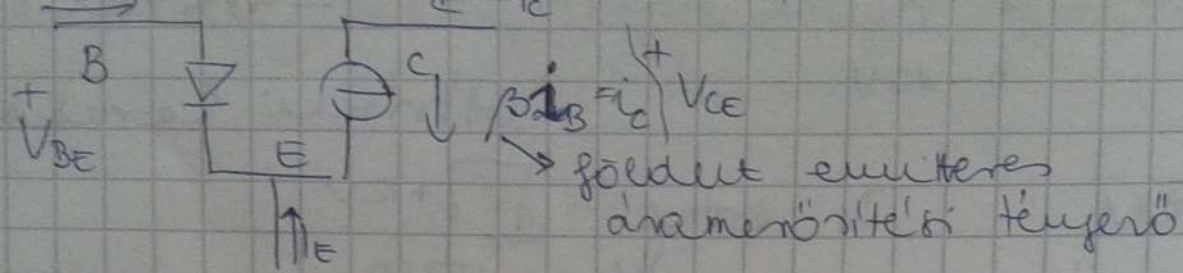 ic
B
C
+
V_BE
βi_B = i_c
+
V_CE
E
földelt emitteres
áramerősítési tényező
i_E